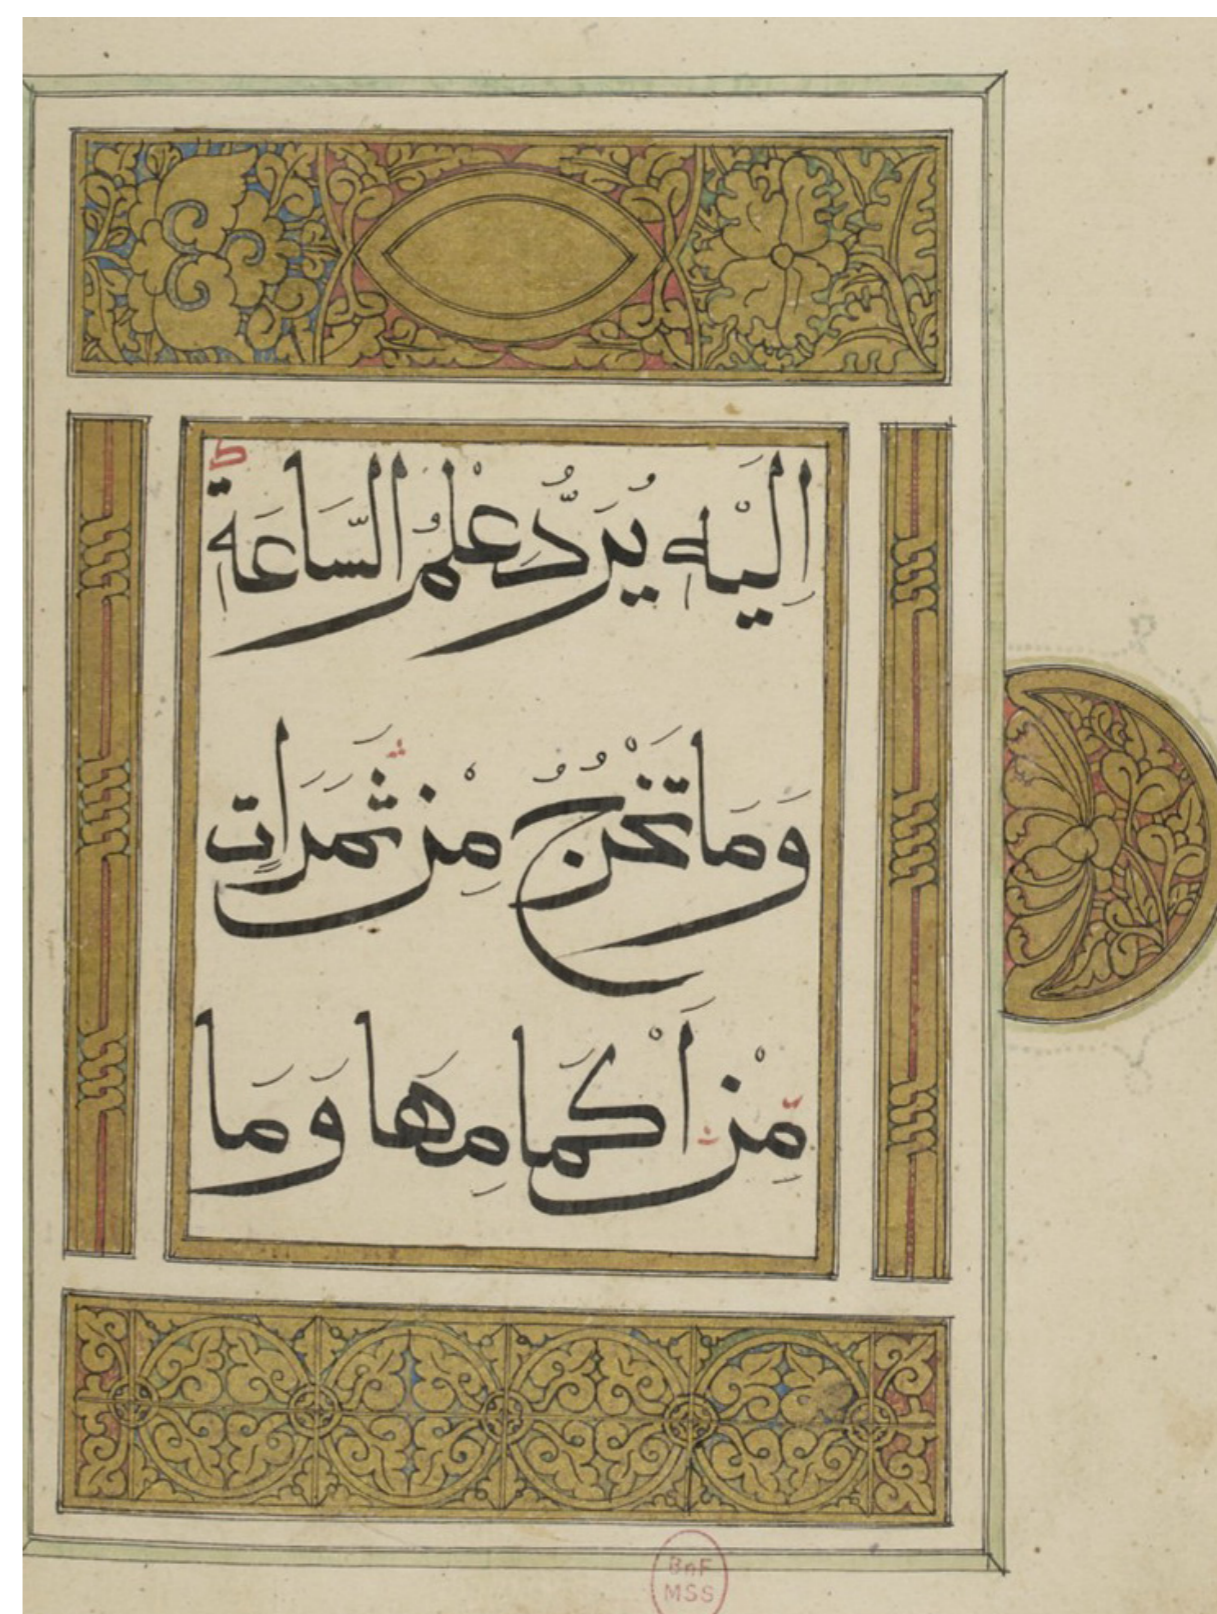 ط
اِلَيْهِ يُرَدُّ عِلْمُ السَّاعَةِ
وَمَا تَخْرُجُ مِنْ ثَمَرَاتٍ
مِّنْ اَكْمَامِهَا وَمَا
BnF
MSS